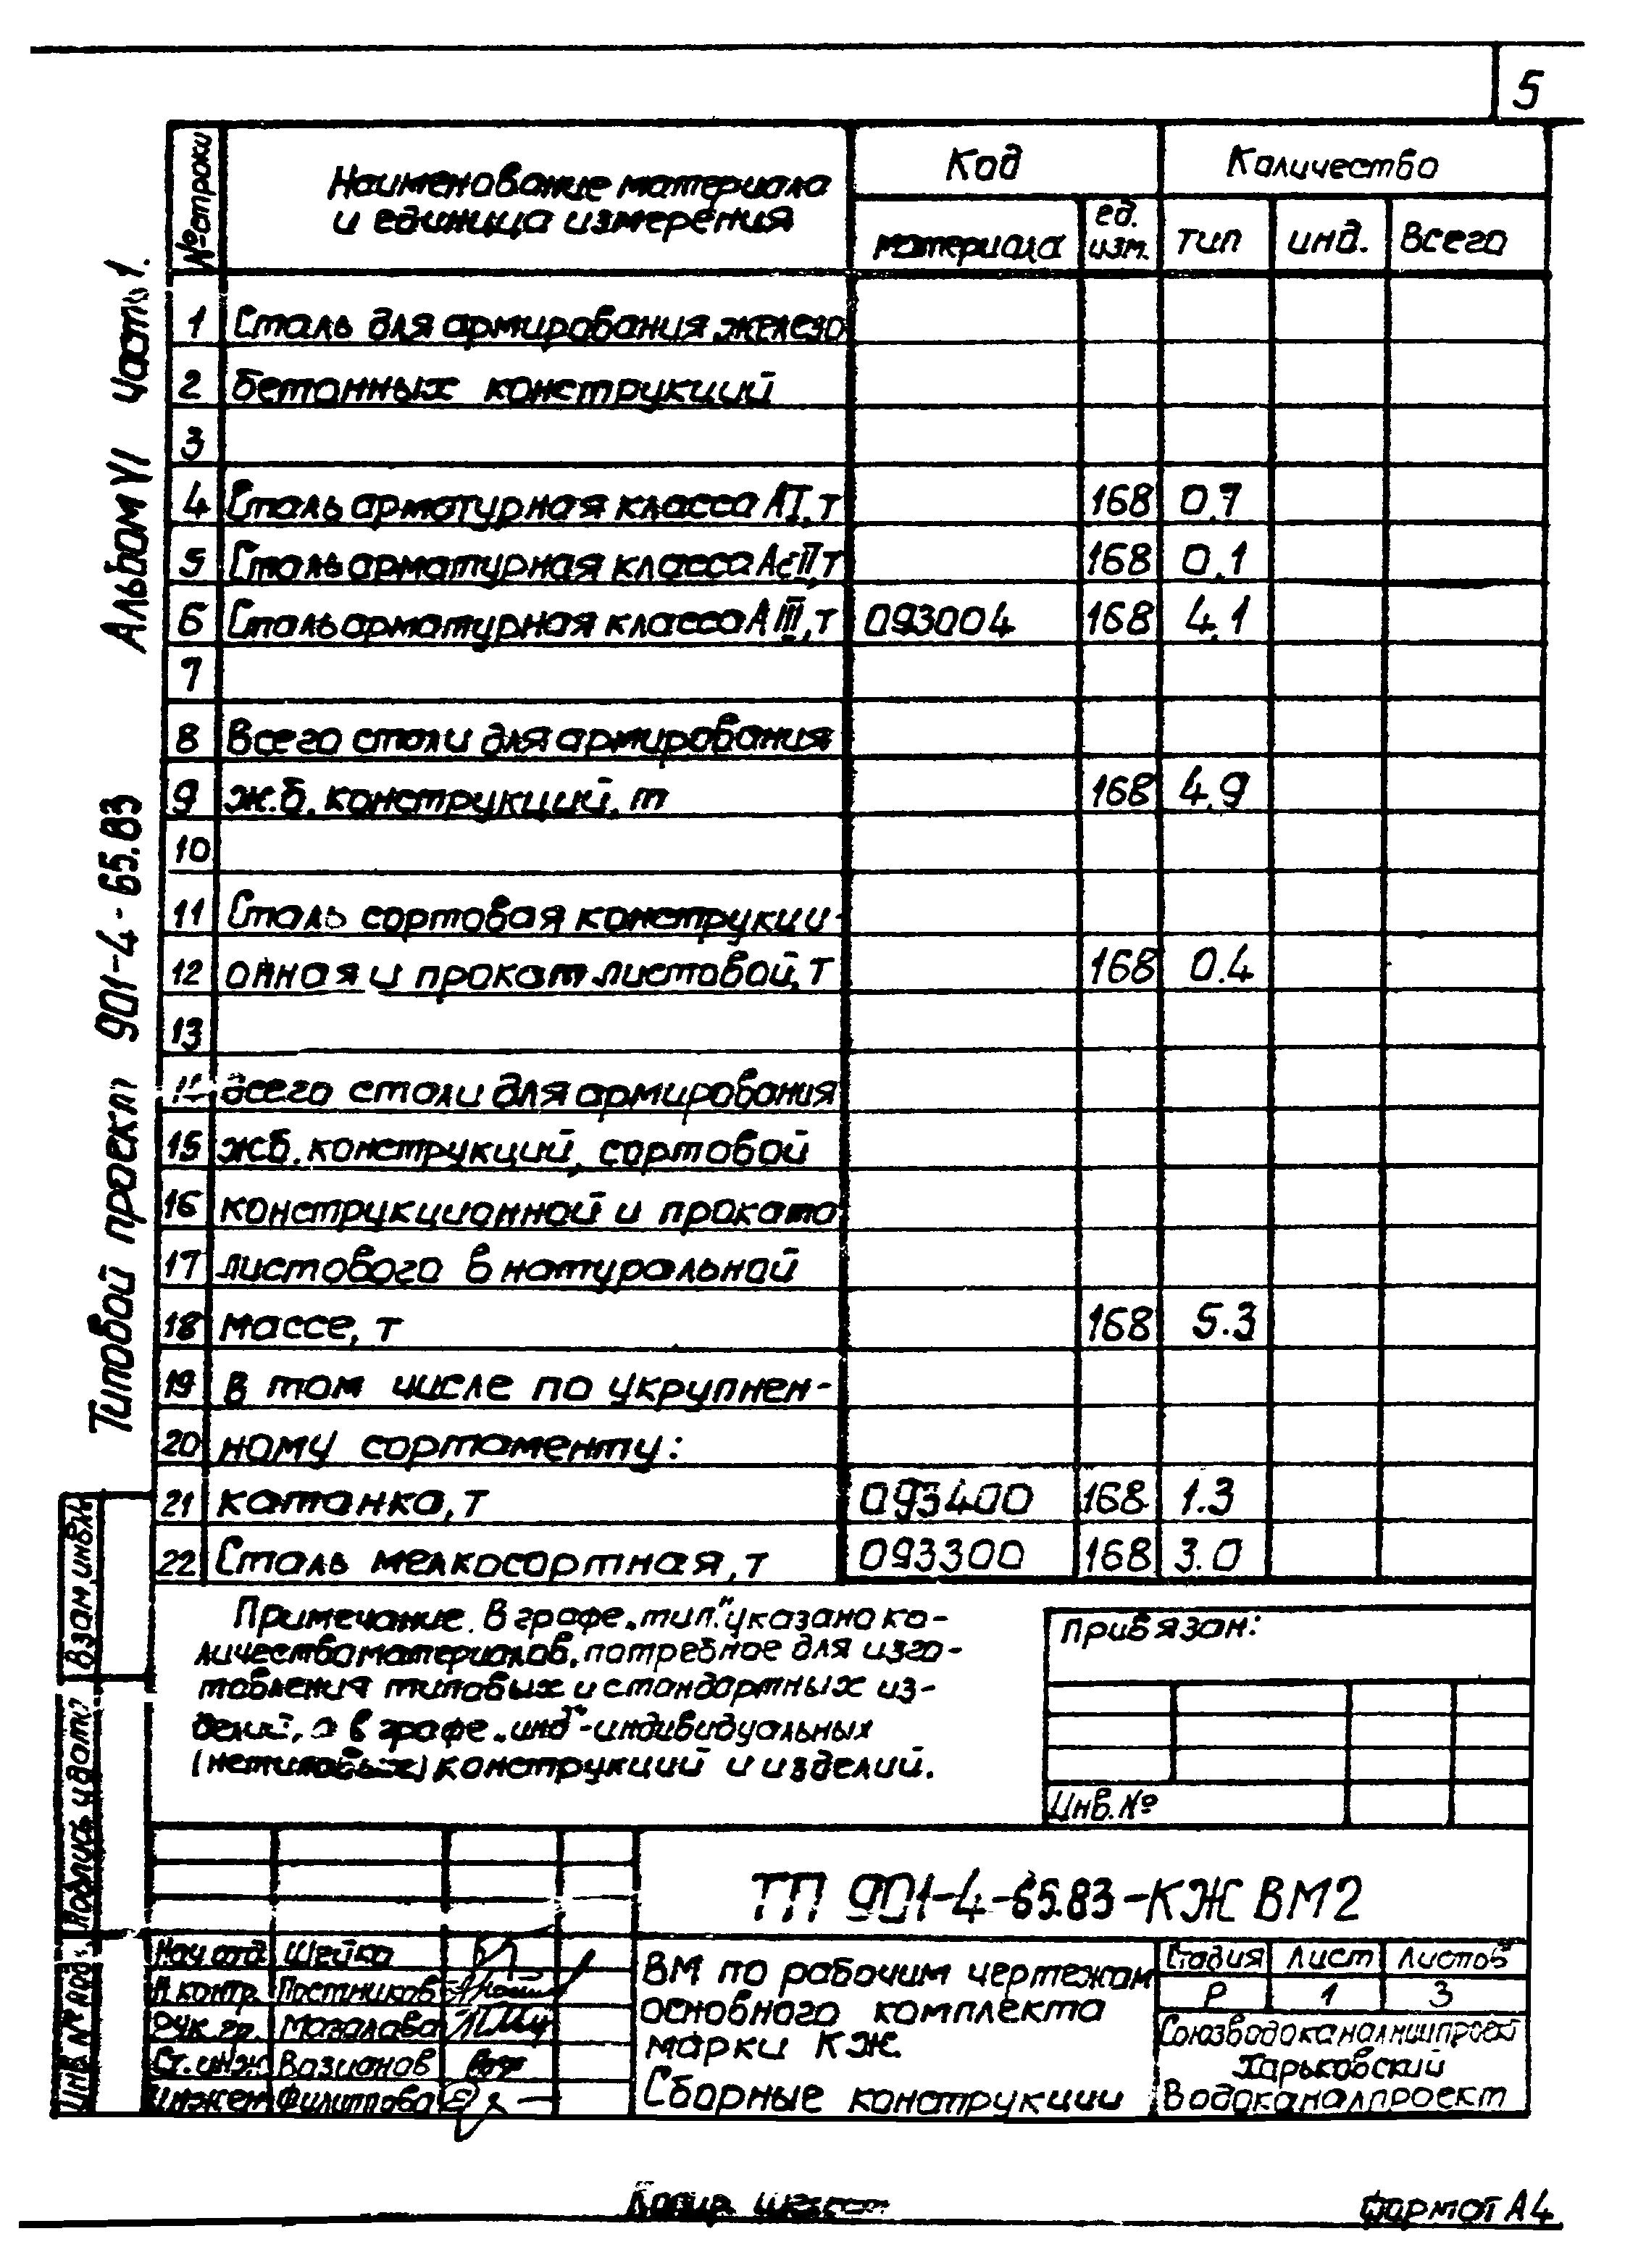 5
№ строки
Наименование материала
и единица измерения
Код
Количество
материала
ед.
изм.
тип
инд.
Всего
1 Сталь для армирования железо
2 бетонных конструкций
3
4 Сталь арматурная класса АI, т 168 0.7
5 Сталь арматурная класса АсII, т 168 0.1
6 Сталь арматурная класса АIII, т 093004 168 4.1
7
8 Всего стали для армирования
9 ж.б. конструкций, т 168 4.9
10
11 Сталь сортовая конструкци-
12 онная и прокат листовой, т 168 0.4
13
Всего стали для армирования
15 жб. конструкций, сортовой
16 конструкционной и проката
17 листового в натуральной
18 массе, т 168 5.3
19 В том числе по укрупнен-
20 ному сортаменту:
21 катанка, т 093400 168 1.3
22 Сталь мелкосортная, т 093300 168 3.0
Примечание. В графе „тип." указано ко-
личество материалов, потребное для изго-
товления типовых и стандартных из-
делий, а в графе „инд"-индивидуальных
(нетиповых) конструкций и изделий.
Привязан:
Инв. №
Типовой проект 901-4-65.83 Альбом VI Часть 1.
Взам инв.№
Подпись и дата
Инв. № подл.
ТП 901-4-65.83-КЖ ВМ2
Нач отд. Шейко
Н контр. Постников
Рук. гр.
Ст. инж
Инжен Филиппова
ВМ по рабочим чертежам
основного комплекта
марки КЖ.
Сборные конструкции
Стадия Лист Листов
Р 1 3
Союзводоканалниипроект
Харьковский
Водоканалпроект
Формат А4